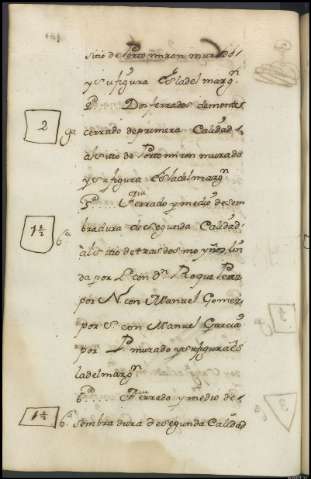 sitio de Porto miron murado
y su figura es la del marg.n
2 Dos ferrados de montes
cerrado de primera Calidad
al sitio de Porto miron murado
y su figura es la del marg.n
5.a Ferrado y medio de sem
1 1/2 bradura de segunda Calidad
6.a al sitio de tras dos mo lin
da por L. con D.n Roque Perez
por N con Manuel Gomez
por S. con Manuel Garcia
por P murado y su figura es
la del marg.n
6.a Ferrado y medio de
1 1/2 6.a Sembradura de segunda Calidad